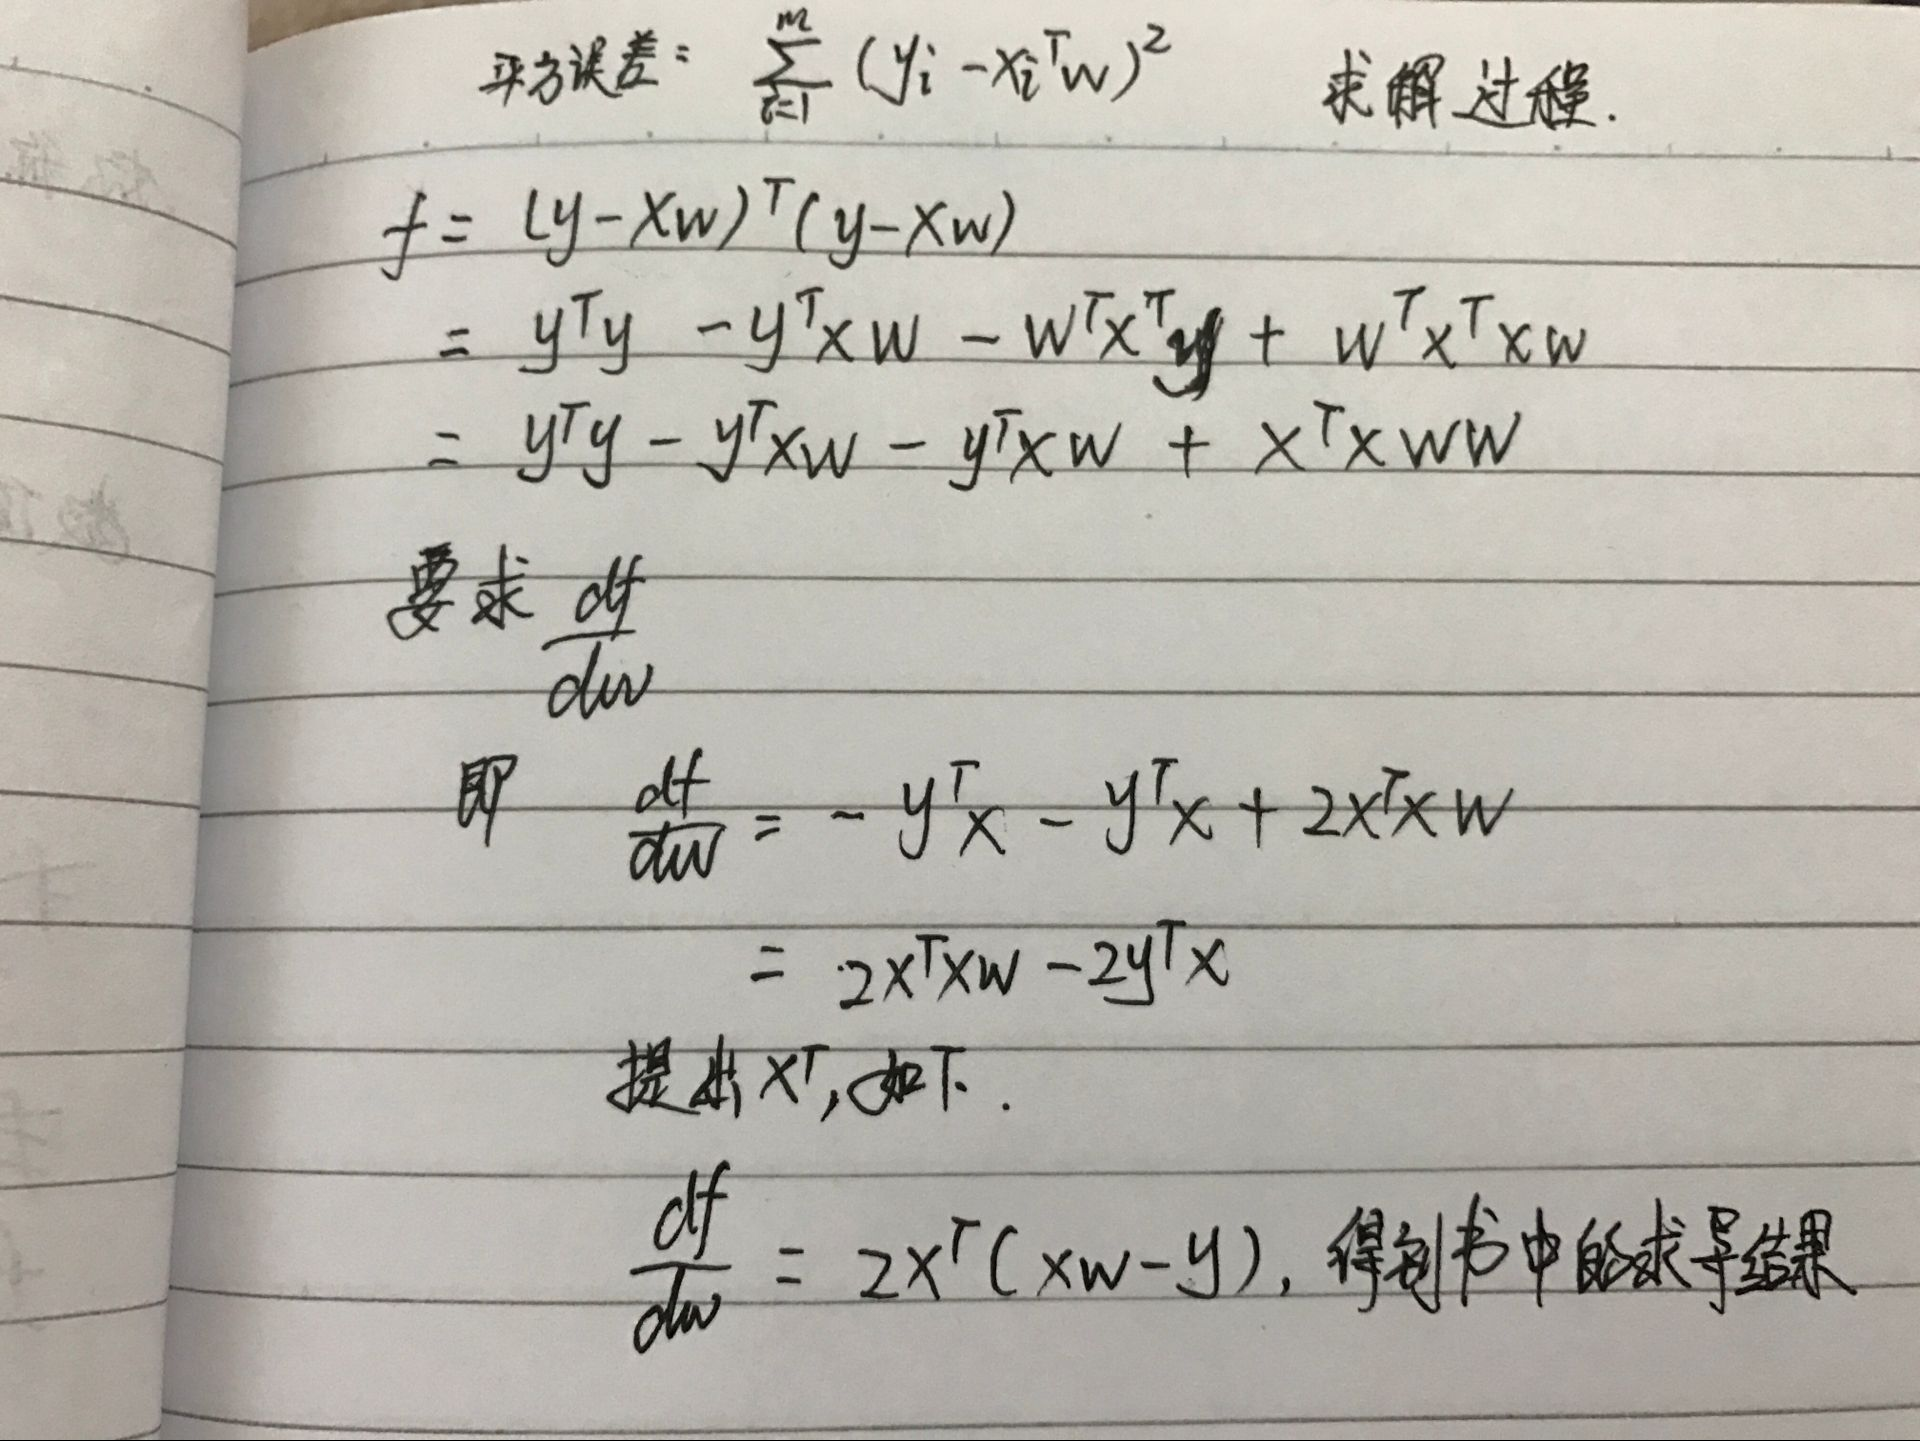 平方误差: \sum_{i=1}^{m} (y_i - x_i^T w)^2 求解过程.
f = (y - Xw)^T (y - Xw)
= y^T y - y^T X W - W^T X^T y + W^T X^T X W
= y^T y - y^T X W - y^T X W + X^T X W W
要求 \frac{df}{dw}
即 \frac{df}{dw} = - y^T X - y^T X + 2X^T X W
= 2X^T X W - 2y^T X
提出 X^T, 如下.
\frac{df}{dw} = 2X^T (XW - y), 得到书中的求导结果